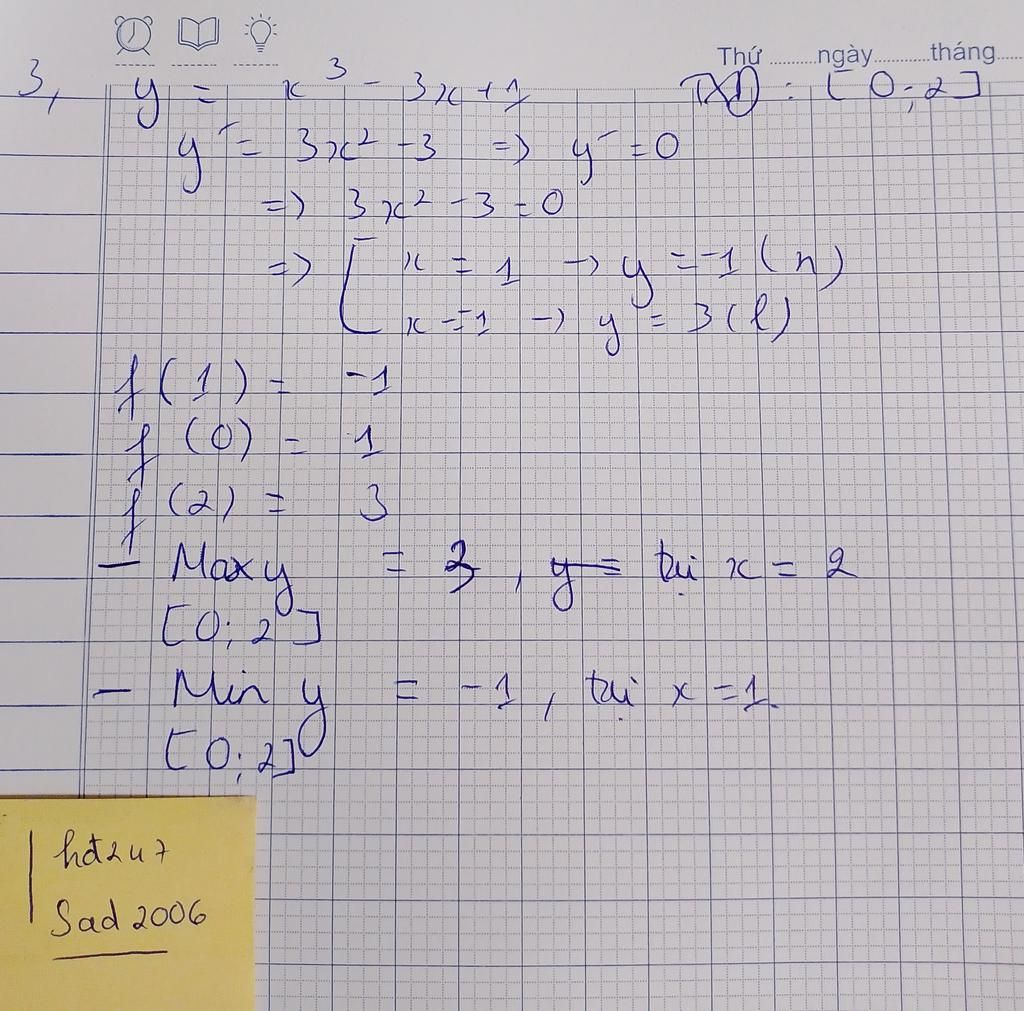 Thứ ..........ngày...........tháng.....
3, y = x³ - 3x + 1 TXĐ : [0 ; 2]
y' = 3x² - 3 => y' = 0
=> 3x² - 3 = 0
=> [ x = 1 → y = -1 (n)
x = -1 → y = 3 (l)
f(1) = -1
f(0) = 1
f(2) = 3
- Max y = 3 , y = tại x = 2
[0; 2]
- Min y = -1 , tại x = 1.
[0; 2]
hđ247
Sad 2006